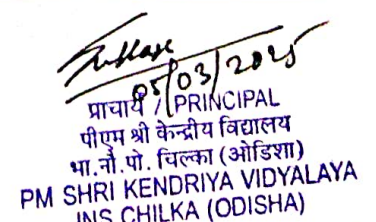 05/03/2025
प्राचार्य / PRINCIPAL
पीएम श्री केन्द्रीय विद्यालय
भा.नौ.पो. चिल्का (ओडिशा)
PM SHRI KENDRIYA VIDYALAYA
INS CHILKA (ODISHA)